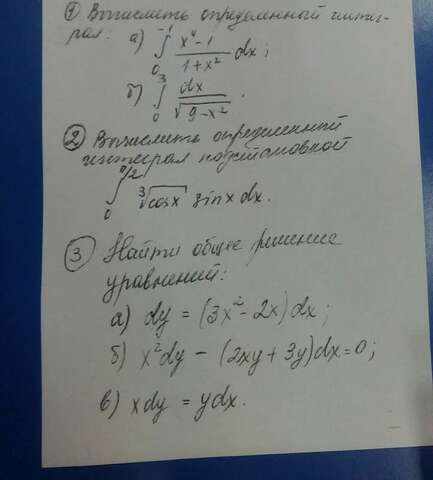 ① Вычислить определенный интег-
рал: а) ∫₀⁻¹ (x⁴-1)/(1+x²) dx;
б) ∫₀³ dx/√(9-x²).
② Вычислить определенный
интеграл подстановкой
∫₀^(π/2) ³√cosx sinx dx.
③ Найти общее решение
уравнений:
а) dy = (3x²-2x)dx;
б) x²dy - (2xy+3y)dx=0;
в) xdy = ydx.